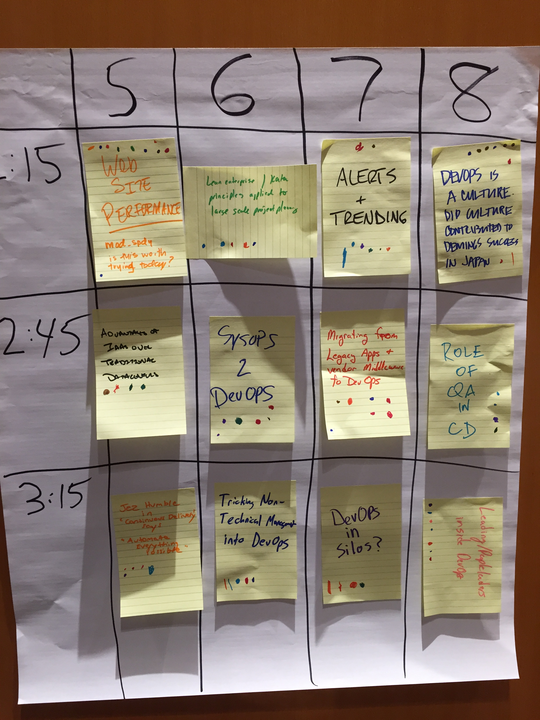 5 6 7 8
:15
WEB
SITE
PERFORMANCE
mod_spdy
is this worth
trying today?
Lean enterprise / Kata
principles applied to
large scale project planning
ALERTS
+
TRENDING
DEVOPS IS
A CULTURE
DID CULTURE
CONTRIBUTED TO
DEMINGS SUCCESS
IN JAPAN
2:45
ADVANTAGES OF
IAAS OVER
TRADITIONAL
DATACENTERS
SYSOPS
2
DevOps
Migrating from
Legacy Apps +
vendor Middleware
to DevOps
ROLE
OF
QA
IN
CD
3:15
Jez Humble
in
"Continuous Delivery
"Automate
everything
possible"
Tricking Non-
Technical Management
into DevOps
DevOps
in
Silos?
Leading People/Leaders
inside DevOps